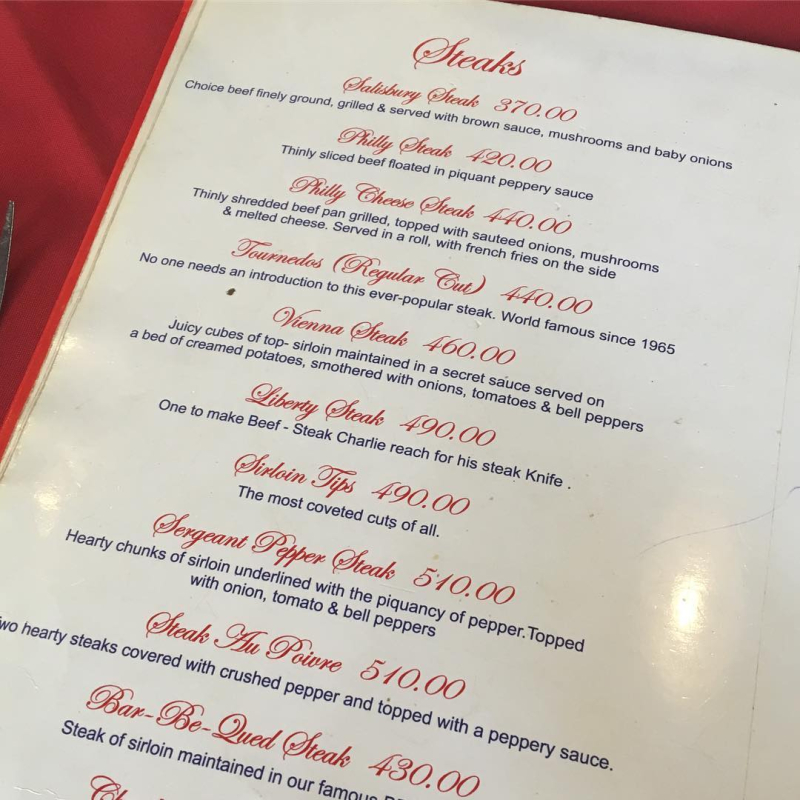 Steaks
Salisbury Steak 370.00
Choice beef finely ground, grilled & served with brown sauce, mushrooms and baby onions
Philly Steak 420.00
Thinly sliced beef floated in piquant peppery sauce
Philly Cheese Steak 440.00
Thinly shredded beef pan grilled, topped with sauteed onions, mushrooms
& melted cheese. Served in a roll, with french fries on the side
Tournedos (Regular Cut) 440.00
No one needs an introduction to this ever-popular steak. World famous since 1965
Vienna Steak 460.00
Juicy cubes of top- sirloin maintained in a secret sauce served on
a bed of creamed potatoes, smothered with onions, tomatoes & bell peppers
Liberty Steak 490.00
One to make Beef - Steak Charlie reach for his steak Knife .
Sirloin Tips 490.00
The most coveted cuts of all.
Sergeant Pepper Steak 510.00
Hearty chunks of sirloin underlined with the piquancy of pepper. Topped
with onion, tomato & bell peppers
Steak Au Poivre 510.00
hearty steaks covered with crushed pepper and topped with a peppery sauce.
Bar-Be-Qued Steak 430.00
Steak of sirloin maintained in our famous